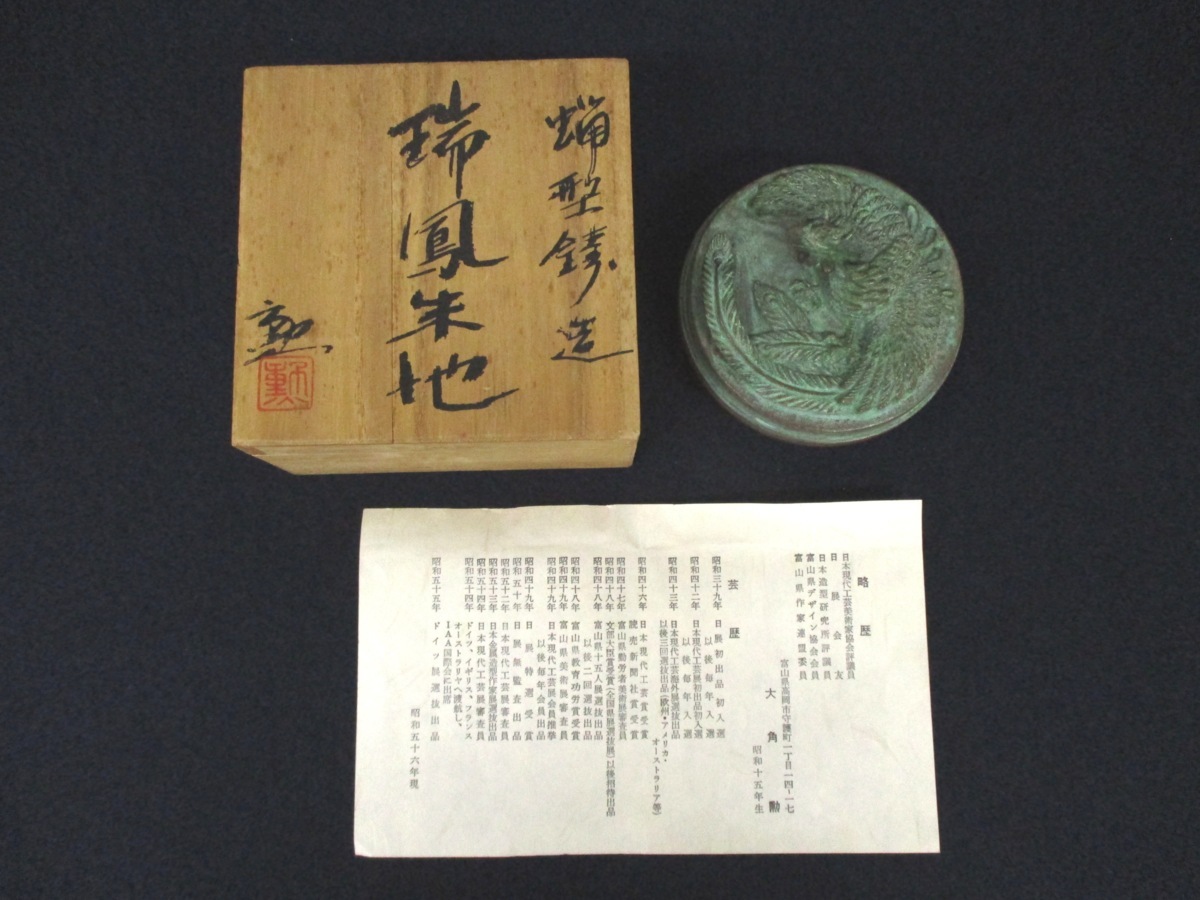 蝋型鋳造
瑞鳳朱地
勲
勲
略歴
日本現代工芸美術家協会評議員
日展会友
日本造型研究所評議員
富山県デザイン協会会員
富山県作家連盟委員
富山県高岡市守護町一丁目一四-一七
大角勲
昭和十五年生
芸歴
昭和三十九年 日展初出品初入選
以後毎年入選
昭和四十二年 日本現代工芸展初出品初入選
以後毎年入選
昭和四十三年 日本現代工芸海外展選抜出品
以後三回選抜出品(欧州・アメリカ・
オーストラリア等)
昭和四十六年 日本現代工芸賞受賞
読売新聞社賞受賞
昭和四十七年 富山県勤労者美術展審査員
昭和四十八年 文部大臣賞受賞(全国県展選抜展)以後招待出品
昭和四十八年 富山県十五人展選抜出品
以後二回選抜出品
昭和四十八年 富山県教育功労賞受賞
昭和四十九年 富山県美術展審査員
昭和四十九年 日本現代工芸展会員推挙
以後毎年会員出品
昭和四十九年 日展特選受賞
昭和五十年 日展無監査出品
昭和五十二年 日本現代工芸展審査員
昭和五十三年 日本金属造型作家展選抜出品
昭和五十四年 日本現代工芸展審査員
昭和五十四年 ドイツ、イギリス、フランス
オーストラリアへ渡航し、
IAA国際会に出席
昭和五十五年 ドイツ展選抜出品
昭和五十六年現